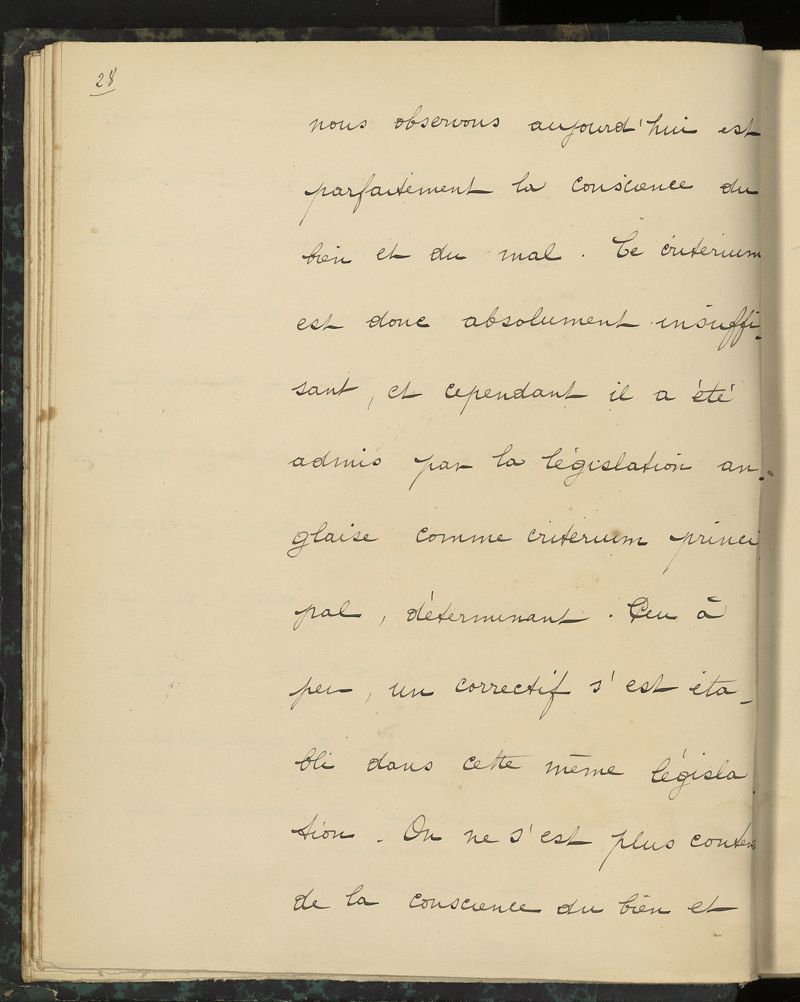 28
nous observons aujourd'hui est
parfaitement la conscience du
bien et du mal. Ce criterium
est donc absolument insuffi-
sant, et cependant il a été
admis par la législation an-
glaise comme criterium princi
pal, déterminant. Peu à
peu, un correctif s'est éta-
bli dans cette même législa-
tion. On ne s'est plus conten
de la conscience du bien et